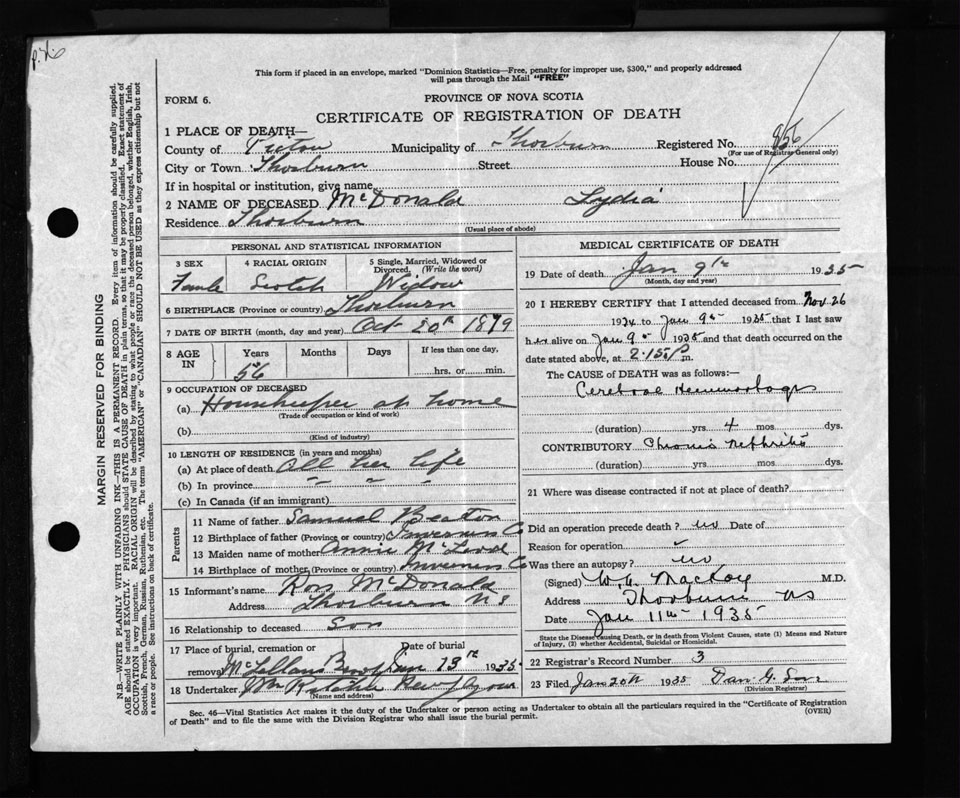 This form if placed in an envelope, marked "Dominion Statistics—Free, penalty for improper use, $300," and properly addressed
will pass through the Mail "FREE"
FORM 6.
PROVINCE OF NOVA SCOTIA
CERTIFICATE OF REGISTRATION OF DEATH
1 PLACE OF DEATH—
County of Pictou Municipality of Thorburn Registered No. 856
(For use of Registrar General only)
City or Town Thorburn Street House No.
If in hospital or institution, give name
2 NAME OF DECEASED McDonald Lydia
Residence Thorburn
(Usual place of abode)
PERSONAL AND STATISTICAL INFORMATION
3 SEX 4 RACIAL ORIGIN 5 Single, Married, Widowed or
Divorced. (Write the word)
Female Scotch Widow
6 BIRTHPLACE (Province or country) Thorburn
7 DATE OF BIRTH (month, day and year) Oct 30th 1879
8 AGE IN Years Months Days If less than one day,
56 hrs. or min.
9 OCCUPATION OF DECEASED
(a) Housekeeper at home
(Trade of occupation or kind of work)
(b)
(Kind of industry)
10 LENGTH OF RESIDENCE (in years and months)
(a) At place of death All her life
(b) In province " " "
(c) In Canada (if an immigrant)
Parents
11 Name of father Samuel Beaton
12 Birthplace of father (Province or country) Inverness Co
13 Maiden name of mother Annie McLeod
14 Birthplace of mother (Province or country) Inverness Co
15 Informant's name Ross McDonald
Address Thorburn NS
16 Relationship to deceased Son
17 Place of burial, cremation or Date of burial
removal McLellans 13th 1935
18 Undertaker
(Name and address)
MEDICAL CERTIFICATE OF DEATH
19 Date of death Jan 9th 1935
(Month, day and year)
20 I HEREBY CERTIFY that I attended deceased from Nov. 26
1934 to Jan 9th 1935 that I last saw
her alive on Jan 9th 1935 and that death occurred on the
date stated above, at 2.15 P m.
The CAUSE OF DEATH was as follows:—
Cerebral Hemorrhage
(duration) yrs. 4 mos. dys.
CONTRIBUTORY Chronic Nephritis
(duration) yrs. mos. dys.
21 Where was disease contracted if not at place of death?
Did an operation precede death? no Date of
Reason for operation -
Was there an autopsy? no
(Signed) MacKay M.D.
Address Thorburn NS
Date Jan 11th 1935
State the Disease Causing Death, or in death from Violent Causes, state (1) Means and Nature
of Injury, (2) whether Accidental, Suicidal or Homicidal.
22 Registrar's Record Number 3
23 Filed Jan 20th 1935 Dan G.
(Division Registrar)
Sec. 46—Vital Statistics Act makes it the duty of the Undertaker or person acting as Undertaker to obtain all the particulars required in the "Certificate of Registration
of Death" and to file the same with the Division Registrar who shall issue the burial permit.
(OVER)
MARGIN RESERVED FOR BINDING
N.B.—WRITE PLAINLY WITH UNFADING INK—THIS IS A PERMANENT RECORD. Every item of information should be carefully supplied.
AGE should be stated EXACTLY. PHYSICIANS should STATE CAUSE OF DEATH in plain terms, so that it may be properly classified. Exact statement of
OCCUPATION is very important. RACIAL ORIGIN will be described by stating to what people or race the deceased person belonged, whether English, Irish,
Scottish, French, German, Russian, Ruthenian, etc. The terms "AMERICAN" or "CANADIAN" SHOULD NOT BE USED as they express citizenship but not
a race or people. See instructions on back of certificate.